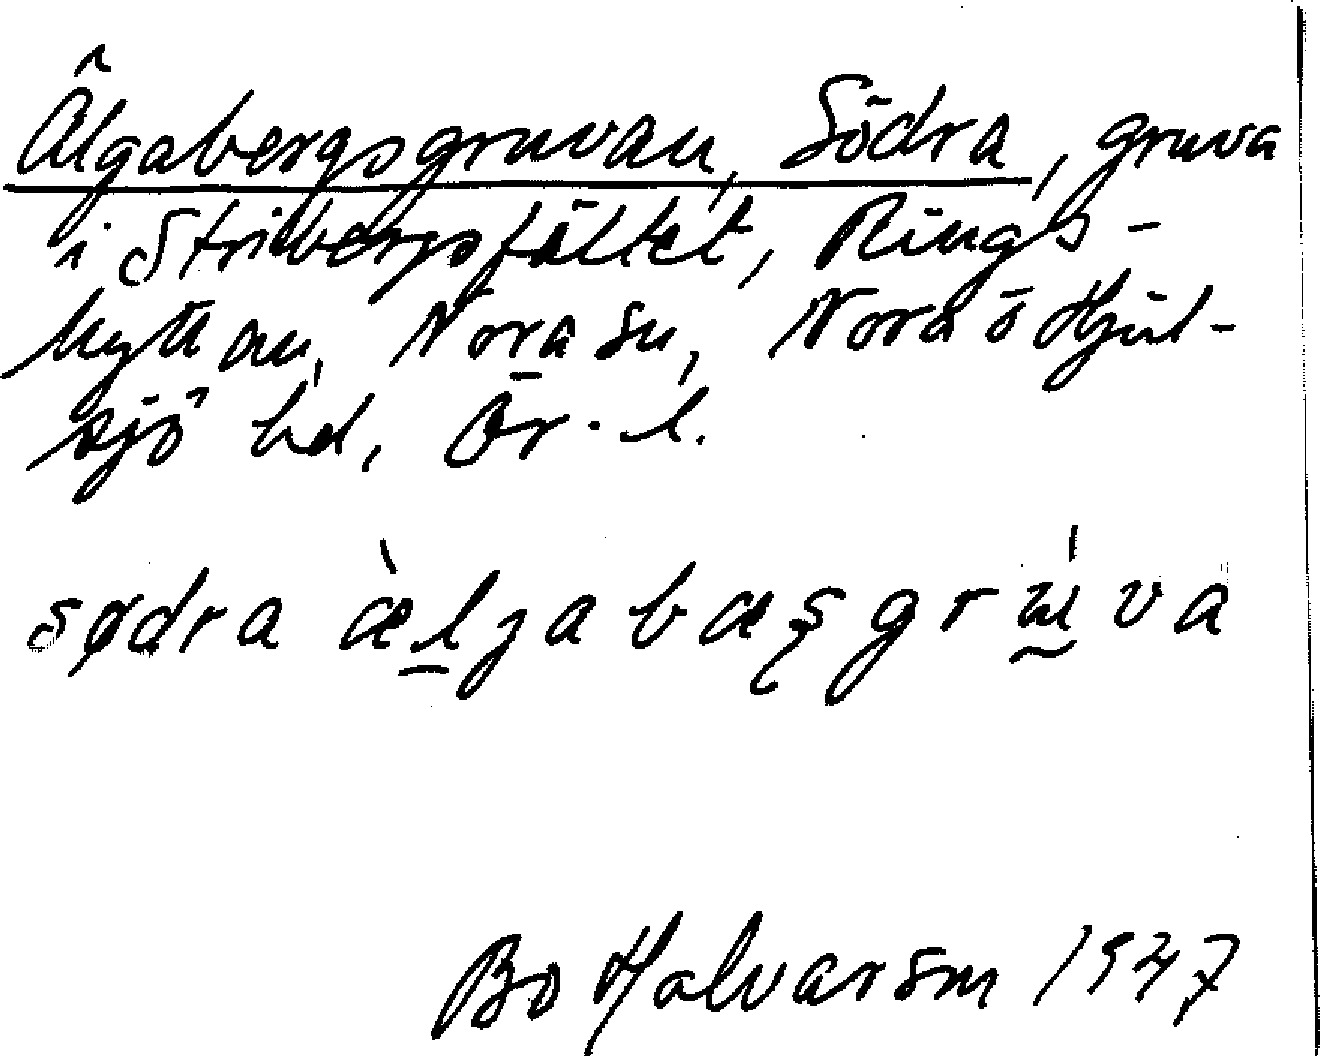 Älgabergsgruvan, Södra, gruva
i Stribergsfältet, Rings-
hyttan, Nora sn, Nora o Hjul-
sjö hd, Ör. l.
sødra æ̀lgabæşgrɯ́va
Bo Halvarson 1947